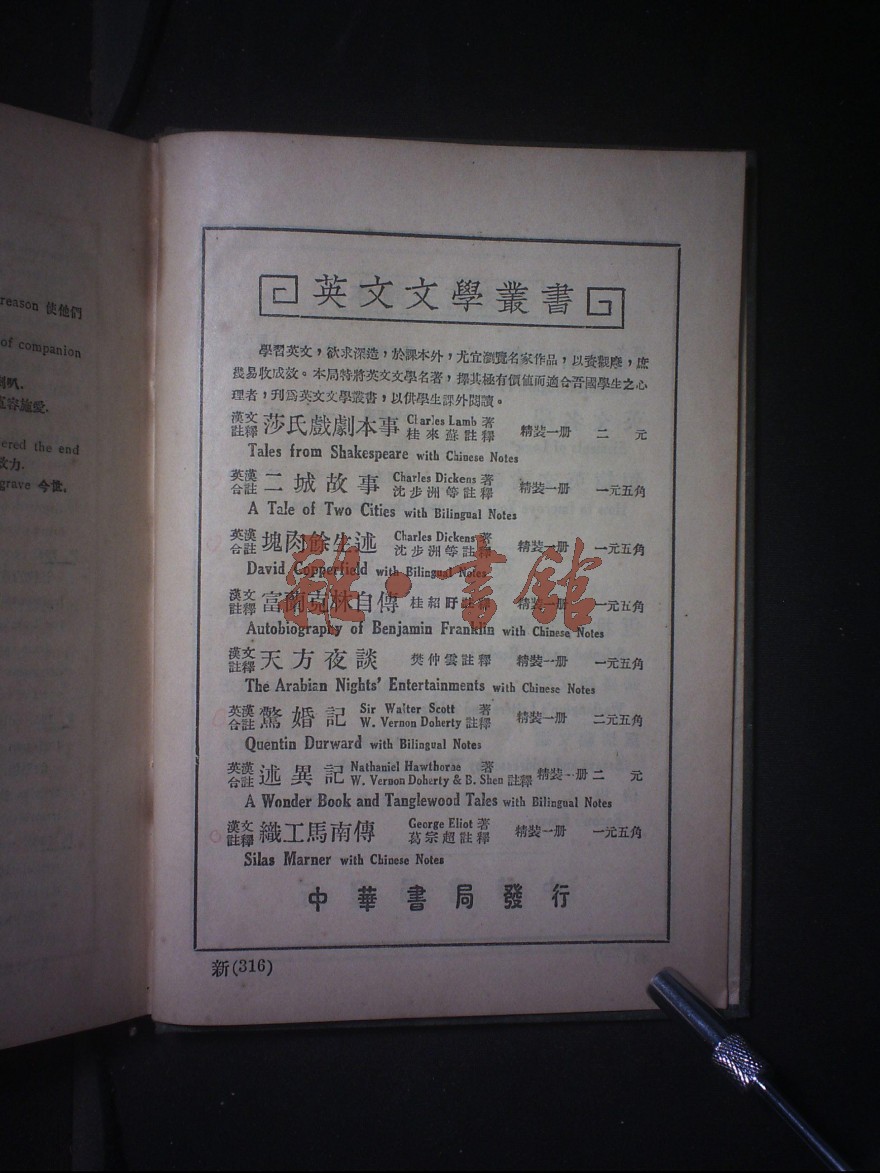 reason 使他們
of companion
喇叭.
ered the end
效力.
grave 今世,
英文文學叢書
學習英文，欲求深造，於課本外，尤宜瀏覽名家作品，以資觀摩，庶
幾易收成效。本局特將英文文學名著，擇其極有價値而適合吾國學生之心
理者，刊爲英文文學叢書，以供學生課外閱讀。
漢文註釋 莎氏戲劇本事 Charles Lamb 著 桂來蘇註釋 精裝一册 二元
Tales from Shakespeare with Chinese Notes
英漢合註 二城故事 Charles Dickens 著 沈步洲等註釋 精裝一册 一元五角
A Tale of Two Cities with Bilingual Notes
英漢合註 塊肉餘生述 Charles Dickens 著 沈步洲等註釋 精裝一册 一元五角
David Copperfield with Bilingual Notes
漢文註釋 富蘭克林自傳 桂紹盱註釋 精裝一册 一元五角
Autobiography of Benjamin Franklin with Chinese Notes
漢文註釋 天方夜談 樊仲雲註釋 精裝一册 一元五角
The Arabian Nights' Entertainments with Chinese Notes
英漢合註 驚婚記 Sir Walter Scott 著 W. Vernon Doherty 註釋 精裝一册 二元五角
Quentin Durward with Bilingual Notes
英漢合註 述異記 Nathaniel Hawthorne 著 W. Vernon Doherty & B. Shen 註釋 精裝一册 二元
A Wonder Book and Tanglewood Tales with Bilingual Notes
漢文註釋 織工馬南傳 George Eliot 著 葛宗超註釋 精裝一册 一元五角
Silas Marner with Chinese Notes
中華書局發行
新(316)
雜·書館